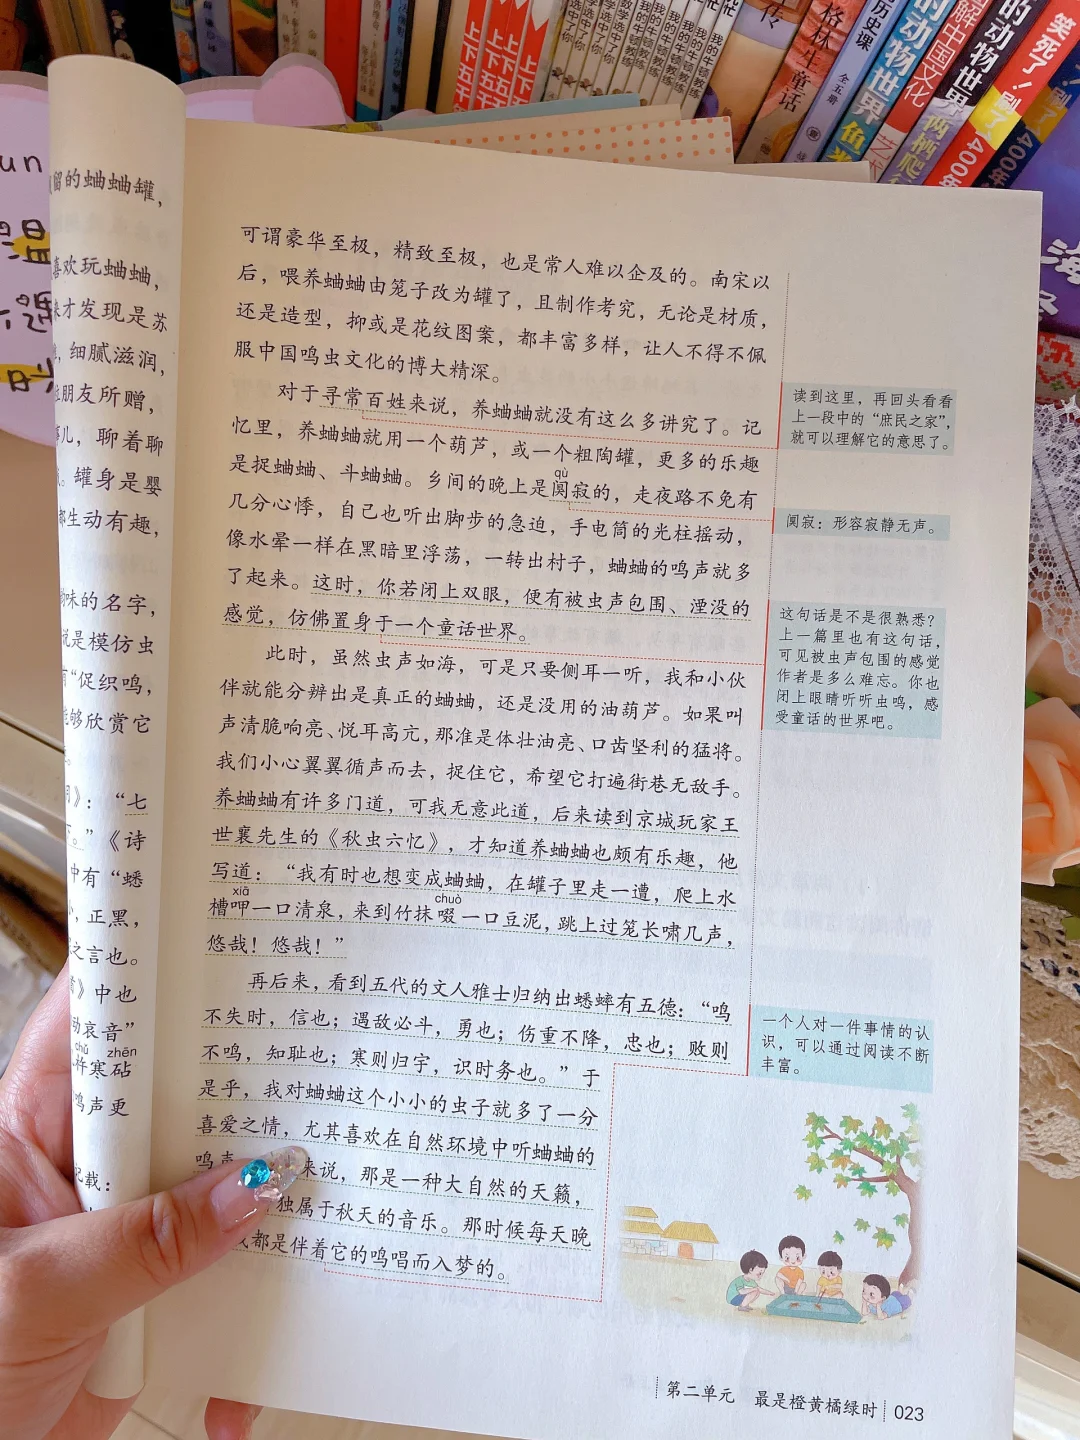 可谓豪华至极，精致至极，也是常人难以企及的。南宋以
后，喂养蛐蛐由笼子改为罐了，且制作考究，无论是材质，
还是造型，抑或是花纹图案，都丰富多样，让人不得不佩
服中国鸣虫文化的博大精深。
对于寻常百姓来说，养蛐蛐就没有这么多讲究了。记
忆里，养蛐蛐就用一个葫芦，或一个粗陶罐，更多的乐趣
是捉蛐蛐、斗蛐蛐。乡间的晚上是阒寂的，走夜路不免有
qù
几分心悸，自己也听出脚步的急迫，手电筒的光柱摇动，
像水晕一样在黑暗里浮荡，一转出村子，蛐蛐的鸣声就多
了起来。这时，你若闭上双眼，便有被虫声包围、湮没的
感觉，仿佛置身于一个童话世界。
此时，虽然虫声如海，可是只要侧耳一听，我和小伙
伴就能分辨出是真正的蛐蛐，还是没用的油葫芦。如果叫
声清脆响亮、悦耳高亢，那准是体壮油亮、口齿坚利的猛将。
我们小心翼翼循声而去，捉住它，希望它打遍街巷无敌手。
养蛐蛐有许多门道，可我无意此道，后来读到京城玩家王
世襄先生的《秋虫六忆》，才知道养蛐蛐也颇有乐趣，他
写道：“我有时也想变成蛐蛐，在罐子里走一遭，爬上水
xiā chuò
槽呷一口清泉，来到竹抹啜一口豆泥，跳上过笼长啸几声，
悠哉！悠哉！”
再后来，看到五代的文人雅士归纳出蟋蟀有五德：“鸣
不失时，信也；遇敌必斗，勇也；伤重不降，忠也；败则
不鸣，知耻也；寒则归宇，识时务也。”于
是乎，我对蛐蛐这个小小的虫子就多了一分
喜爱之情，尤其喜欢在自然环境中听蛐蛐的
鸣声 来说，那是一种大自然的天籁，
独属于秋天的音乐。那时候每天晚
都是伴着它的鸣唱而入梦的。
读到这里，再回头看看
上一段中的“庶民之家”，
就可以理解它的意思了。
阒寂：形容寂静无声。
这句话是不是很熟悉？
上一篇里也有这句话，
可见被虫声包围的感觉
作者是多么难忘。你也
闭上眼睛听听虫鸣，感
受童话的世界吧。
一个人对一件事情的认
识，可以通过阅读不断
丰富。
第二单元 最是橙黄橘绿时 023
留的蛐蛐罐，
喜欢玩蛐蛐，
才发现是苏
细腻滋润，
朋友所赠，
儿，聊着聊
罐身是婴
都生动有趣，
味的名字，
说是模仿虫
“促织鸣，
能够欣赏它
》：“七
。”《诗
中有“蟋
，正黑，
之言也。
》中也
动哀音”
chǔ zhēn
寒砧
鸣声更
记载：
un
温
上下五千
我的牛顿教练
数学选中了你
传
格林生童话
历史课
全五册
的动物世界
鱼类
图解中国文化
的动物世界
两栖爬
笑死了！刷了400
海